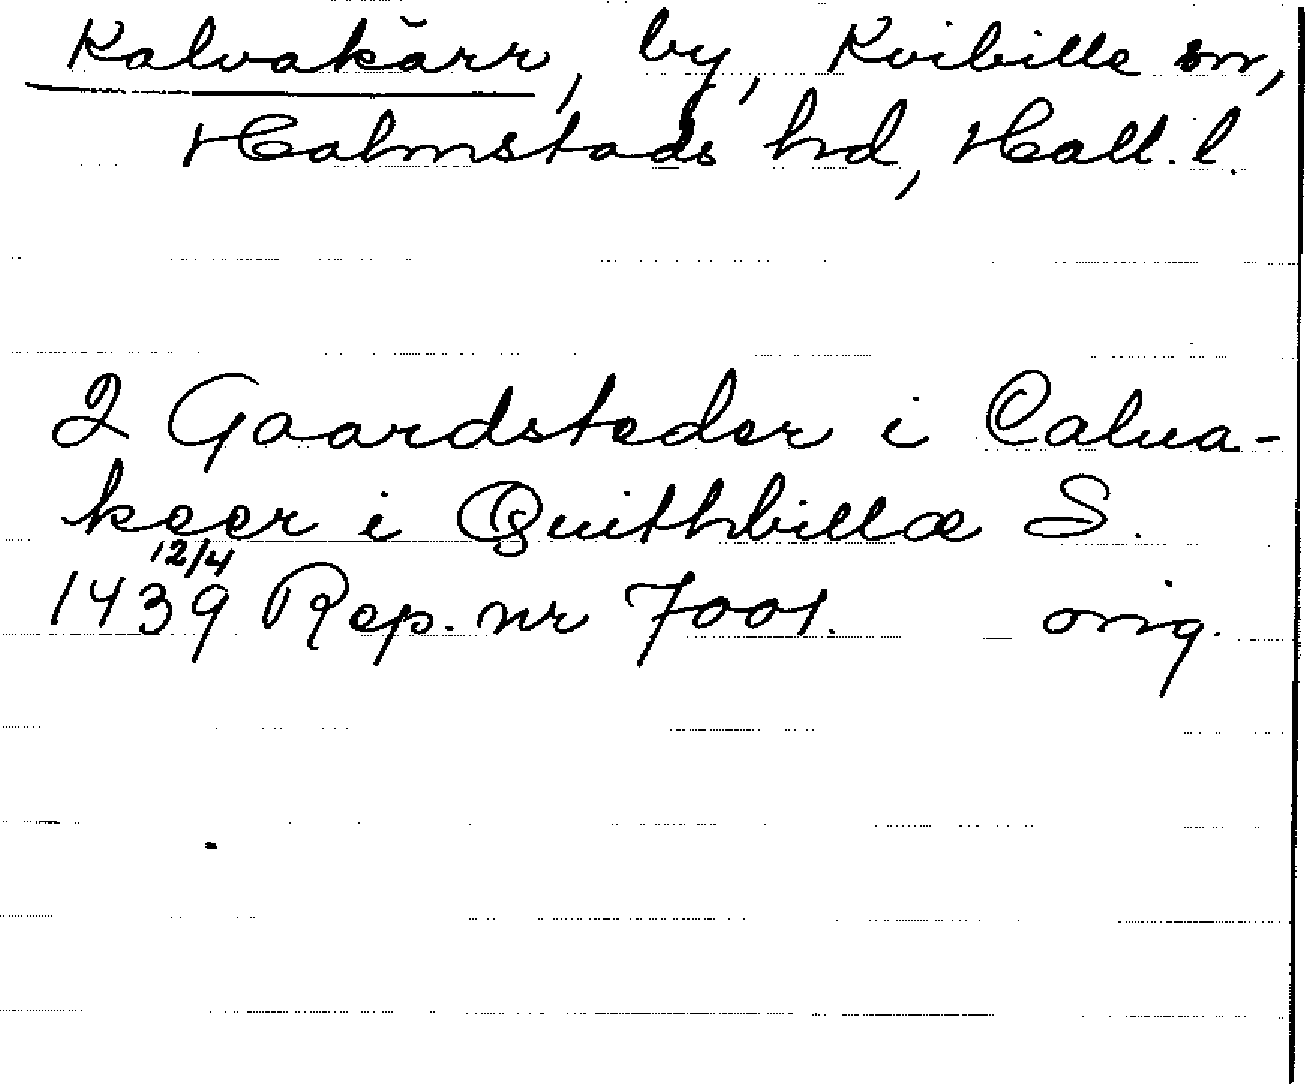 Kalvakärr, by, Kvibille sn,
Halmstads hd, Hall. l.
2 Gaardsteder i Calua-
keer i Quithbillæ S.
12/4
1439 Rep. nr 7001. orig.